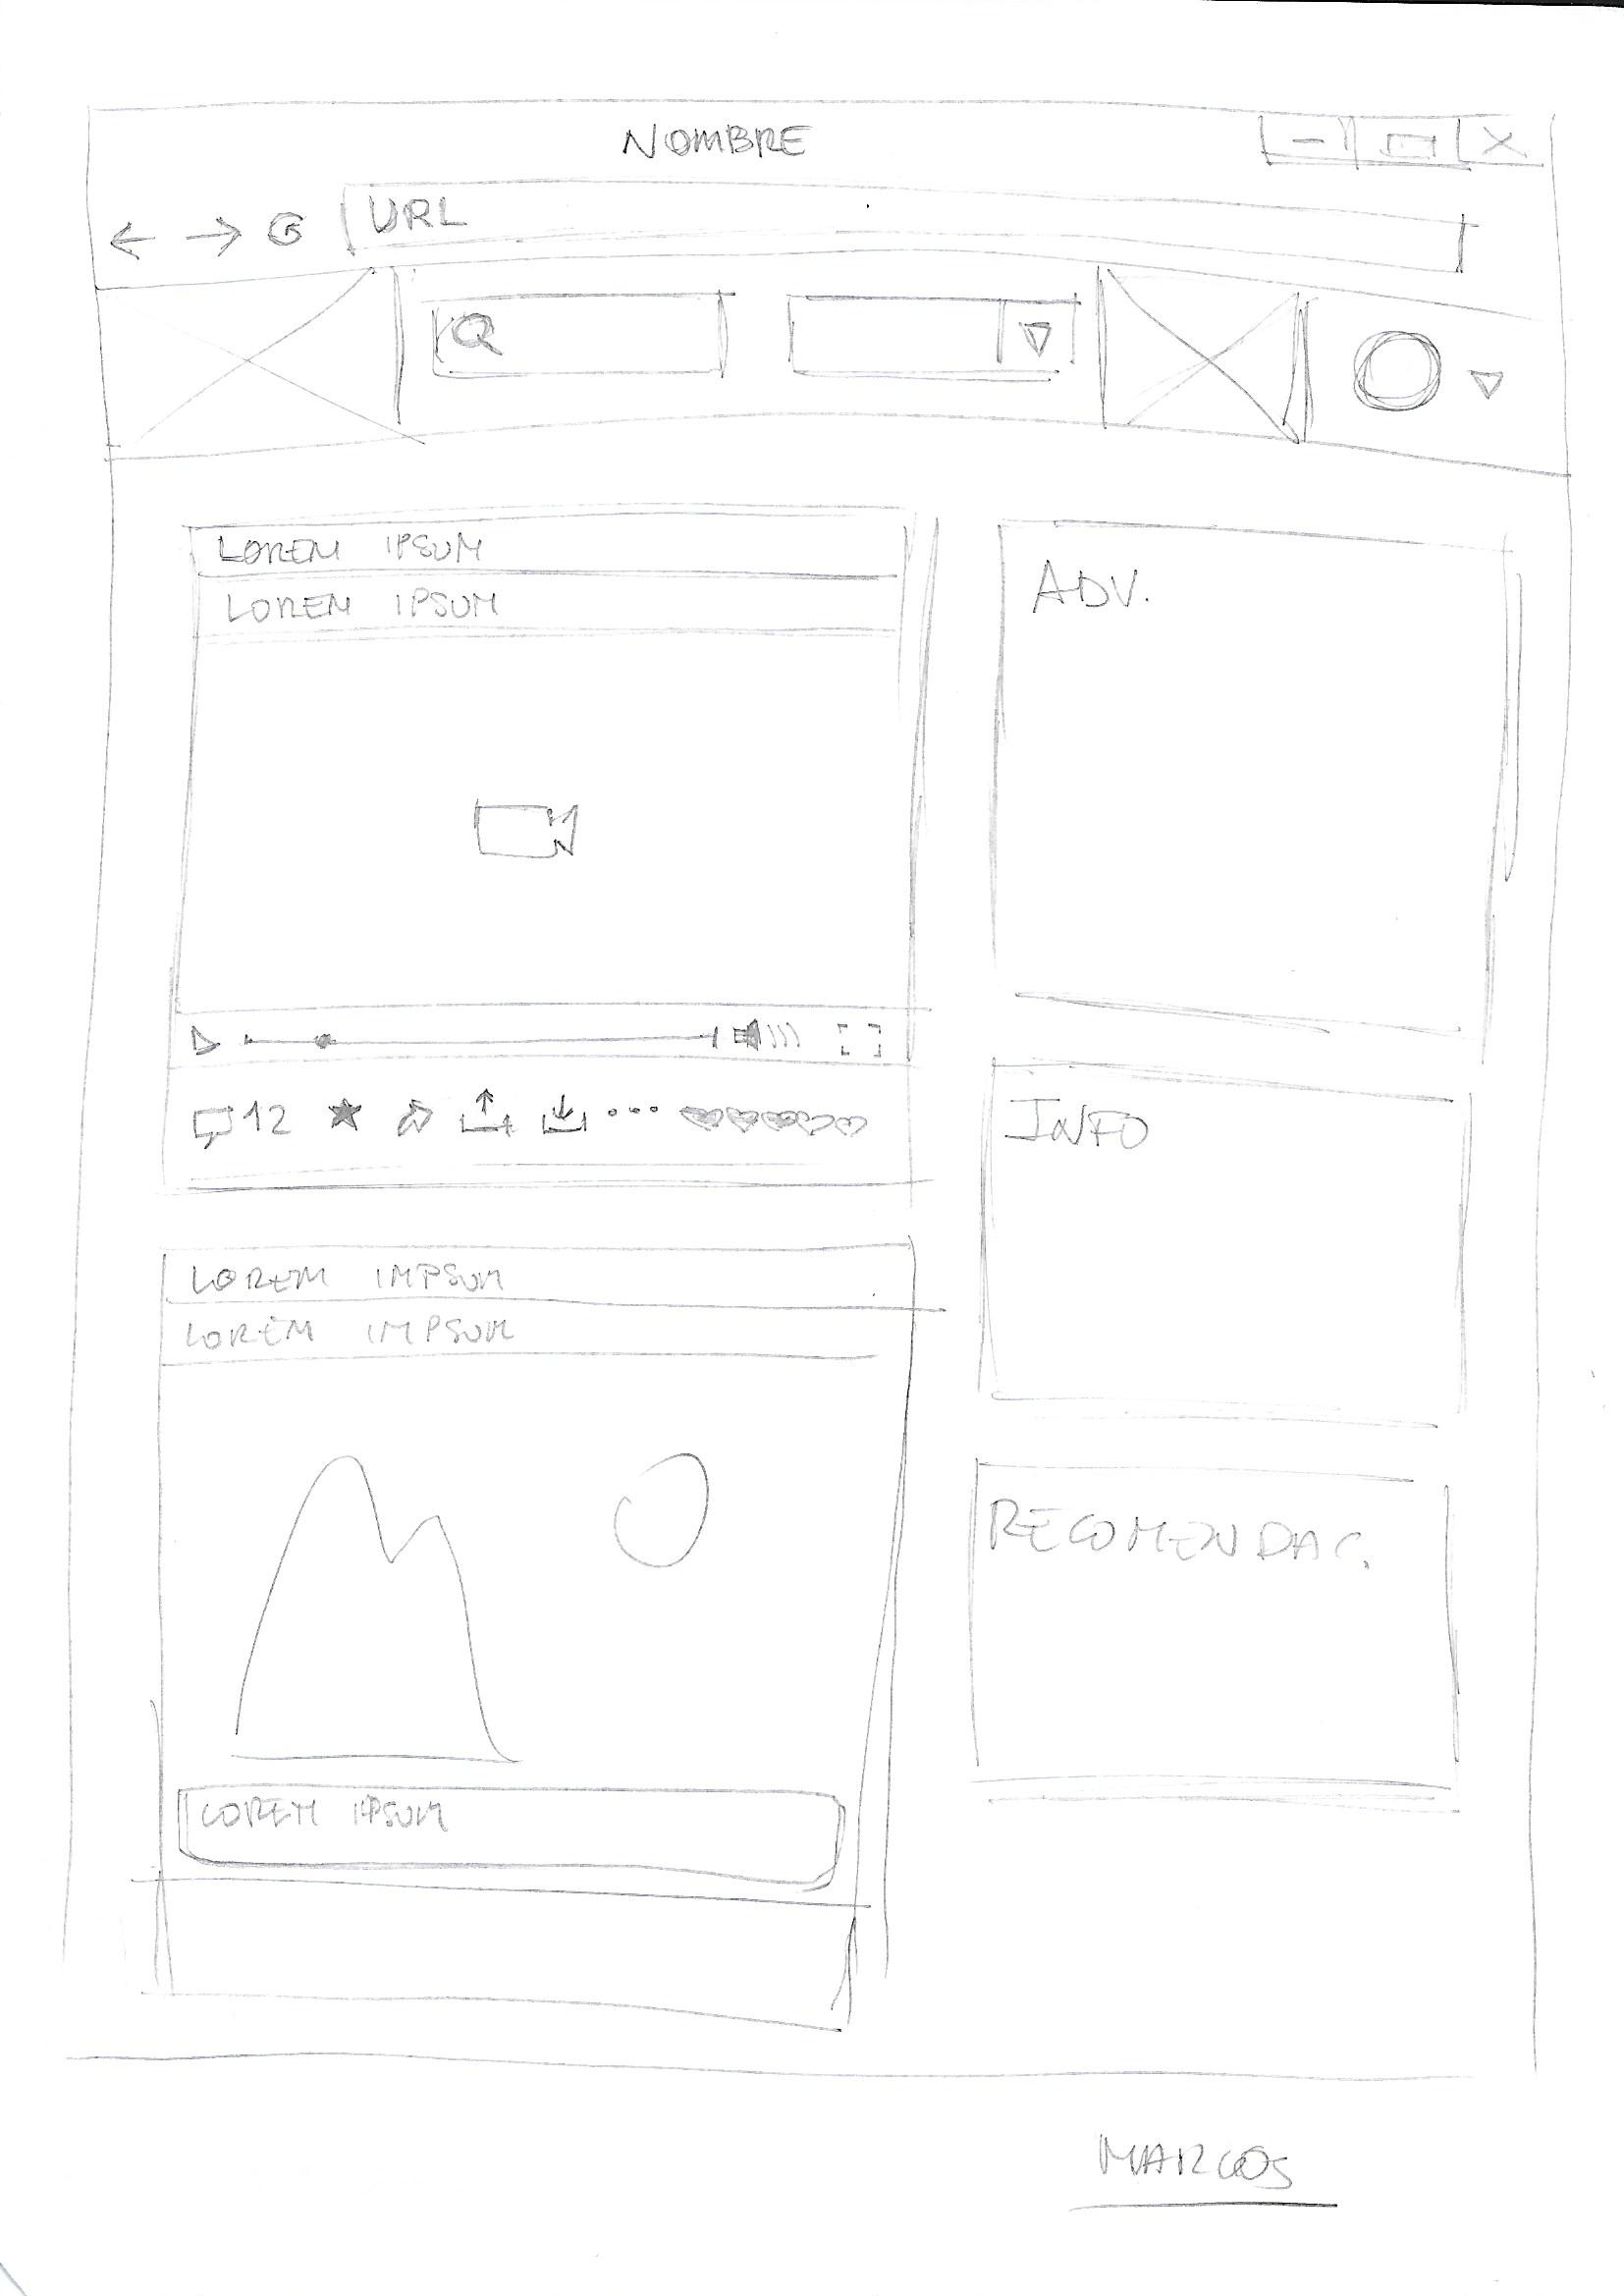 NOMBRE
URL
LOREM IPSUM
LOREM IPSUM
12
LOREM IMPSUM
LOREM IMPSUM
LOREM IPSUM
ADV.
INFO
RECOMENDAC.
MARCOS